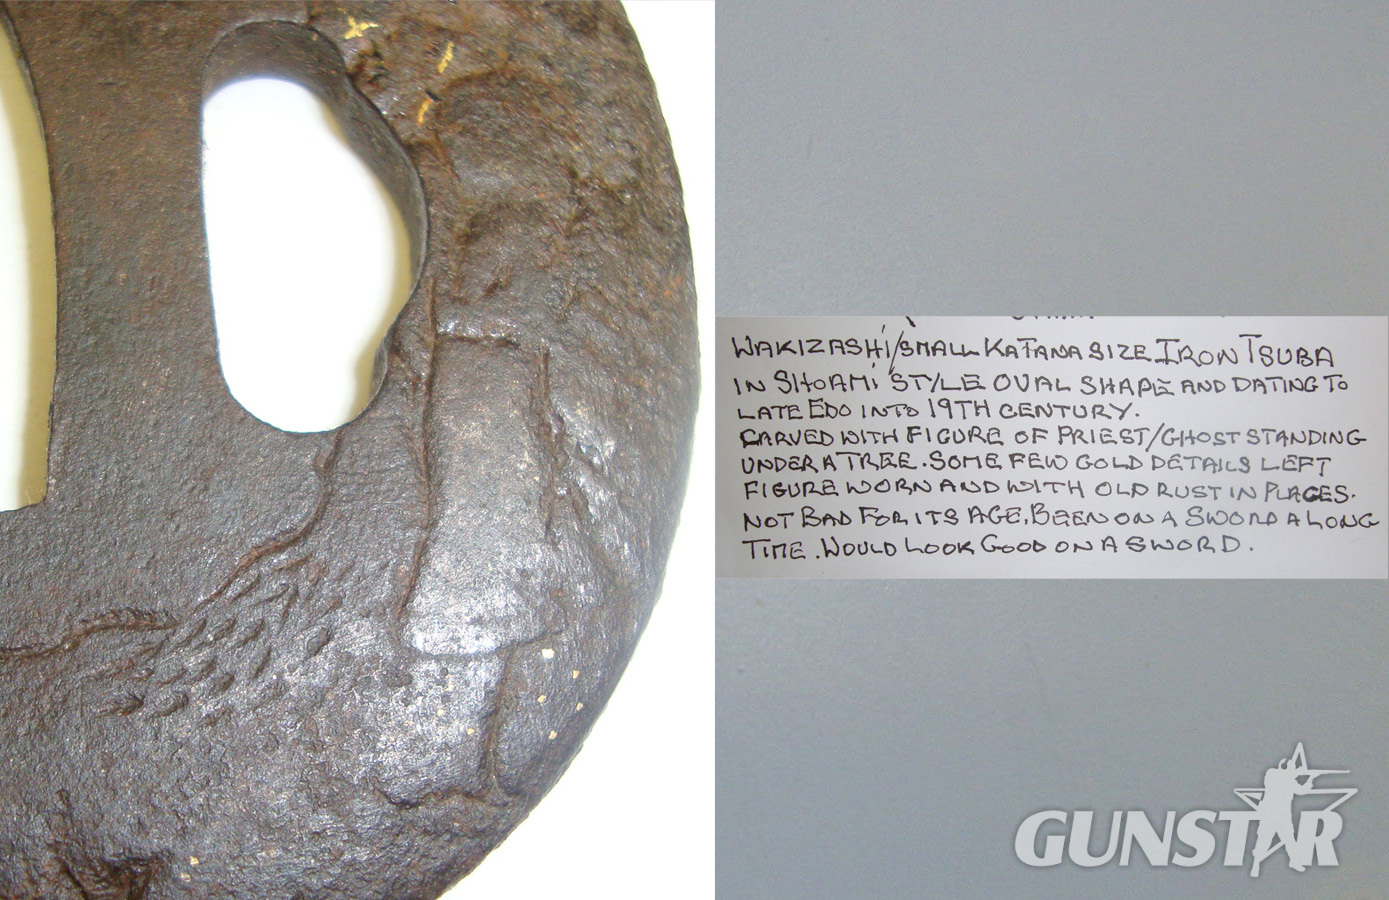 WAKIZASHI/SMALL KATANA SIZE IRON TSUBA
IN SHOAMI STYLE OVAL SHAPE AND DATING TO
LATE EDO INTO 19TH CENTURY.
CARVED WITH FIGURE OF PRIEST/GHOST STANDING
UNDER A TREE. SOME FEW GOLD DETAILS LEFT
FIGURE WORN AND WITH OLD RUST IN PLACES.
NOT BAD FOR ITS AGE. BEEN ON A SWORD A LONG
TIME. WOULD LOOK GOOD ON A SWORD.
GUNSTAR